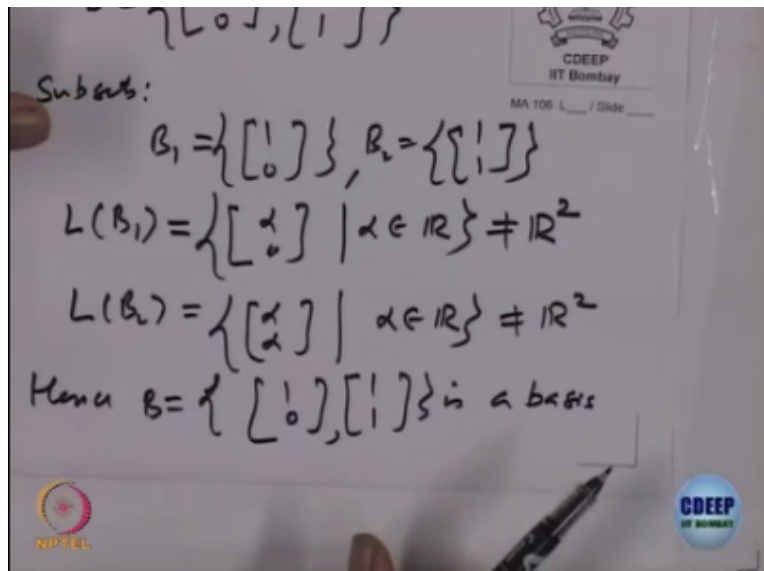 {[1 0], [1 1]}
CDEEP
IIT Bombay
MA 106 L___ / Slide ____
Subsets:
B₁ = {[1 0]}, B₂ = {[1 1]}
L(B₁) = {[α 0] | α ∈ ℝ} ≠ ℝ²
L(B₂) = {[α α] | α ∈ ℝ} ≠ ℝ²
Hence B = {[1 0], [1 1]} is a basis
NPTEL
CDEEP
IIT BOMBAY